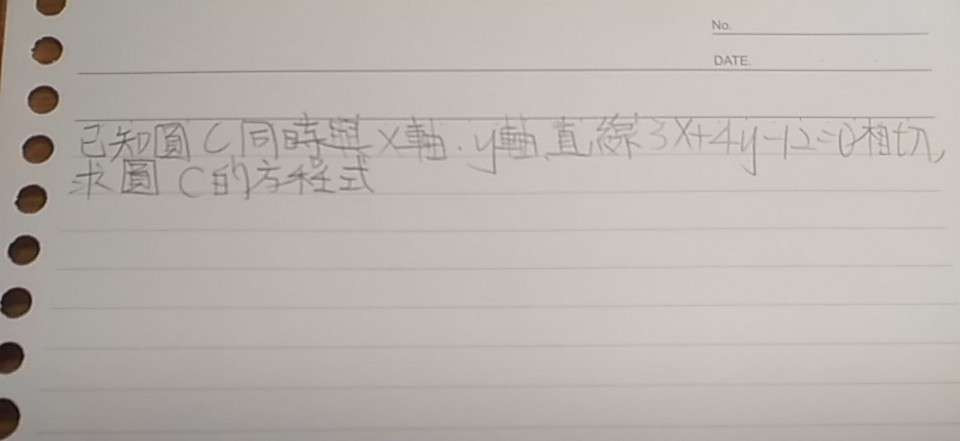 No.
DATE.
已知圓 C 同時與 x軸.y軸.直線3x+4y-12=0相切,
求圓 C的方程式